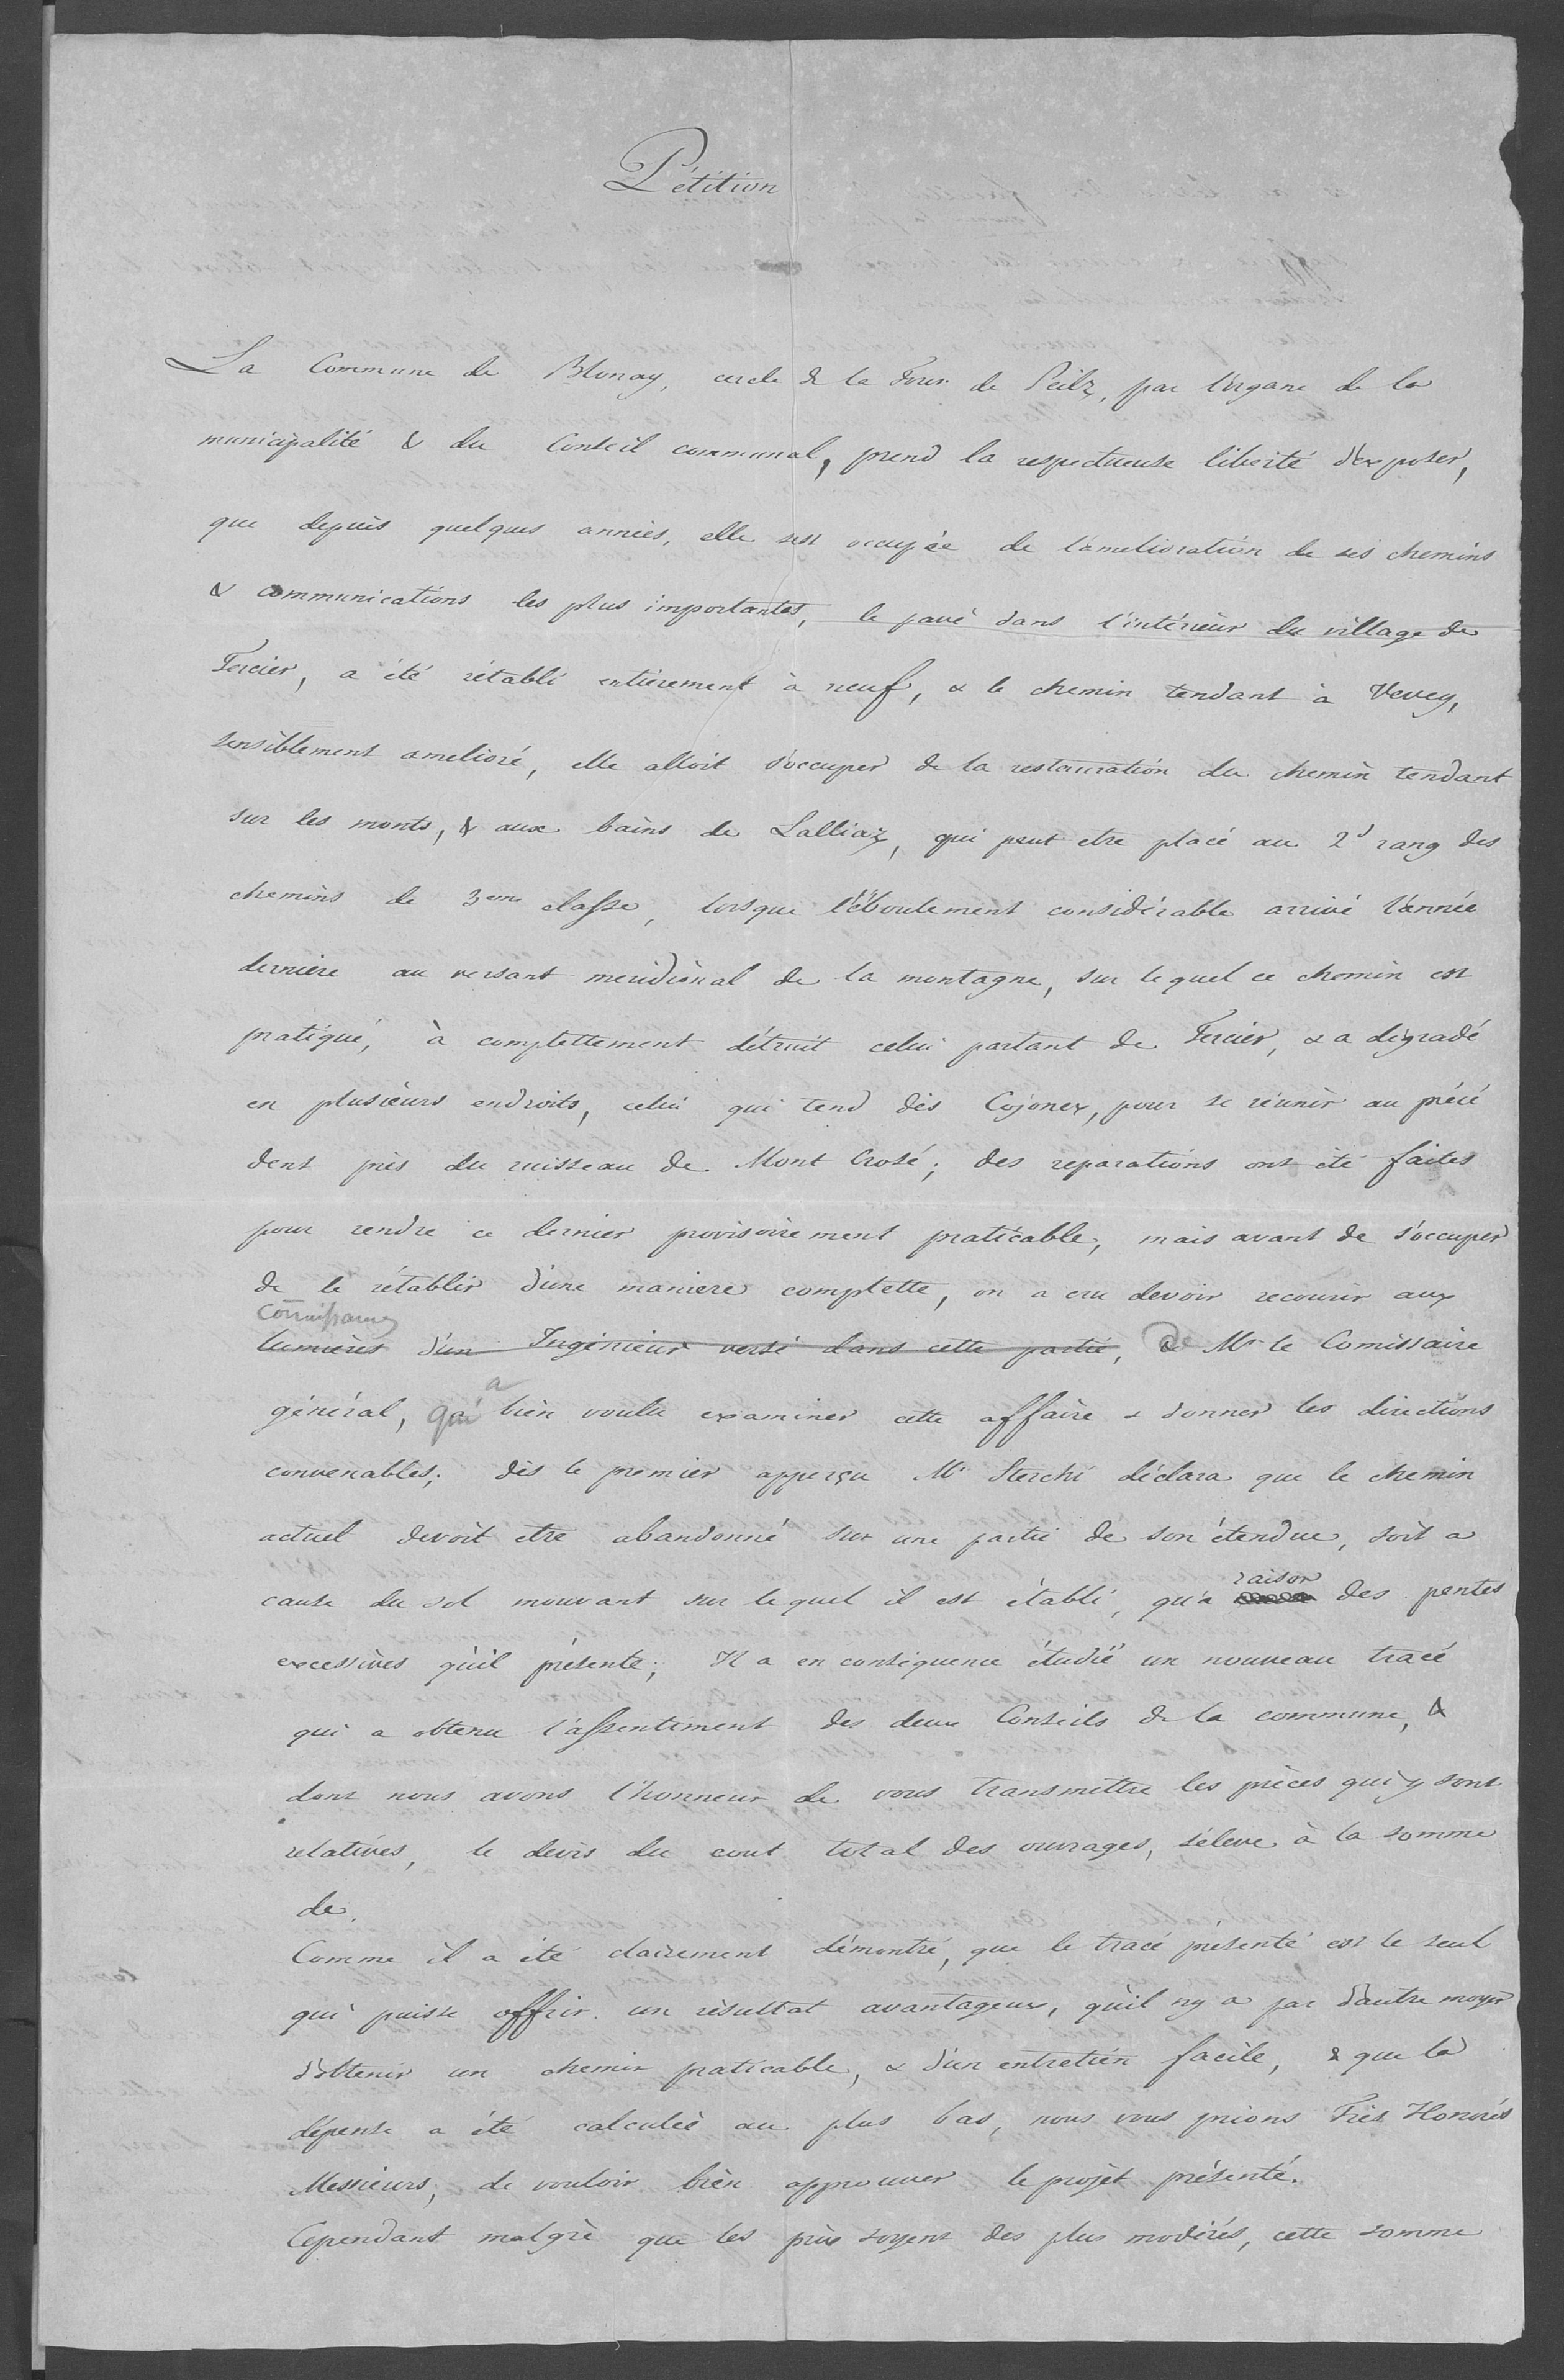 Pétition
La Commune de Blonay, cercle de la Tour de Peilz, par l'organe de la
municipalité & du Conseil communal, prend la respectueuse liberté d'exposer,
que depuis quelques années, elle s'est occupée de l'amelioration de ses chemins
& communications les plus importantes, le pavé dans l'intérieur du village de
Tercier, a été rétabli entièrement à neuf, & le chemin tendant à Vevey,
sensiblement amelioré, elle alloit s'occuper de la restauration du chemin tendant
sur les monts, & aux bains de Lalliaz, qui peut etre placé au 2d rang des
chemins de 3eme classe, lorsque l'éboulement considérable arrivé l'année
derniere au versant meridional de la montagne, sur lequel ce chemin est
pratiqué, à complettement détruit celui partant de Tercier, & a dégradé
en plusieurs endroits, celui qui tend dès Cojonex, pour se réunir au précé
dent près du ruisseau de Mont Crosé; des reparations ont été faites
pour rendre ce dernier provisoirement praticable, mais avant de s'occuper
de le rétablir d'une maniere complette, on a cru devoir recourir aux
connaissances
lumières d'un Ingénieur versé dans cette partie, de Mr le Comissaire
général, qui a bien voulu examiner cette affaire & donner les directions
convenables; dès le premier apperçu Mr Sterchi déclara que le chemin
actuel devoit etre abandonné sur une partie de son étendue, soit a
cause du sol mouvant sur lequel il est établi, qu'a raison des pentes
excessives qu'il présente; Il a en conséquence étudié un nouveau tracé
qui a obtenu l'assentiment des deux Conseils de la commune, &
dont nous avons l'honneur de vous transmettre les pièces qui y sont
relatives, le devis du cout total des ouvrages, s'éleve à la somme
de.
Comme il a été clairement démontré, que le tracé présenté est le seul
qui puisse offrir un résultat avantageux, qu'il ny a pas d'autre moyen
d'obtenir un chemin praticable, & d'un entretien facile, & que la
dépense a été calculée au plus bas, nous vous prions Très Honorés
Messieurs, de vouloir bien approuver le projet présenté.
Cependant malgré que les prix soyent des plus modérés, cette somme